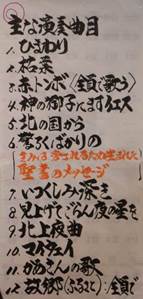 主な演奏曲目
1. ひまわり
2. 枯葉
3. 赤トンボ〈鎮で歌う〉
4. 神の御子にますイエス
5. 北の国から
6. 驚くばかりの
きみは愛されるため生まれた
聖書のメッセージ
7. いつくしみ深き
8. 見上げてごらん夜の星を
9. 北上夜曲
10. マイウェイ
11. かあさんの歌
12. 故郷(ふるさと):鎮で